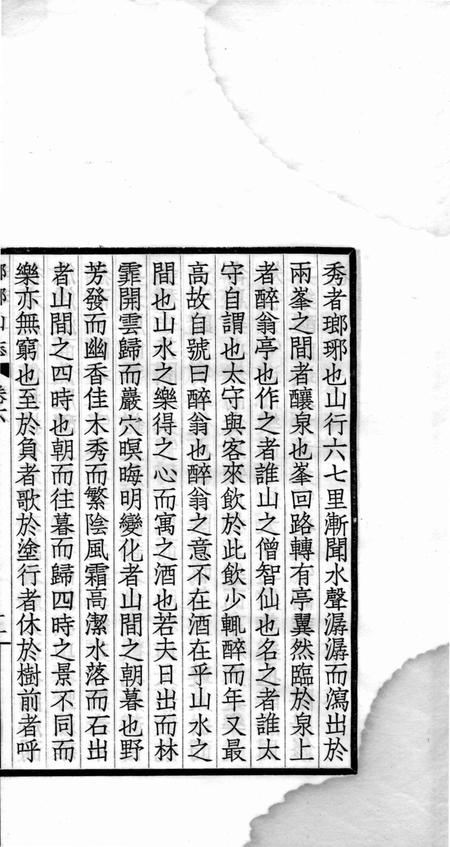 秀者瑯琊也山行六七里漸聞水聲潺潺而瀉出於
兩峯之間者釀泉也峯回路轉有亭翼然臨於泉上
者醉翁亭也作亭者誰山之僧智仙也名之者誰太
守自謂也太守與客來飲於此飲少輒醉而年又最
高故自號曰醉翁也醉翁之意不在酒在乎山水之
間也山水之樂得之心而寓之酒也若夫日出而林
霏開雲歸而巖穴暝晦明變化者山間之朝暮也野
芳發而幽香佳木秀而繁陰風霜高潔水落而石出
者山間之四時也朝而往暮而歸四時之景不同而
樂亦無窮也至於負者歌於塗行者休於樹前者呼
瑯琊山志 卷六